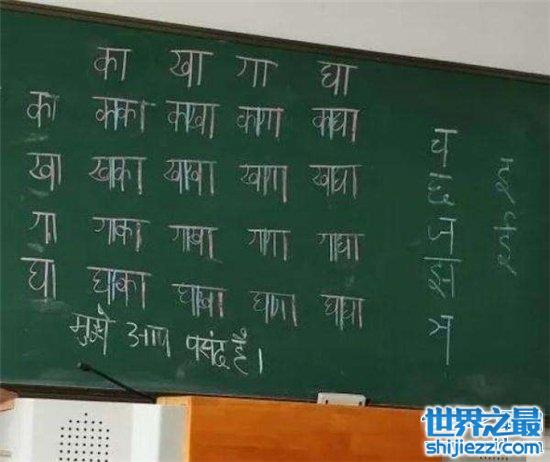 का खा गा घा
का काका काखा कागा काघा
खा खाका खाखा खागा खाघा
गा गाका गाखा गागा गाघा
घा घाका घाखा घागा घाघा
मुझे आप पसंद है।
च
छ
ज
झ
世界之最
shijiezzl.com